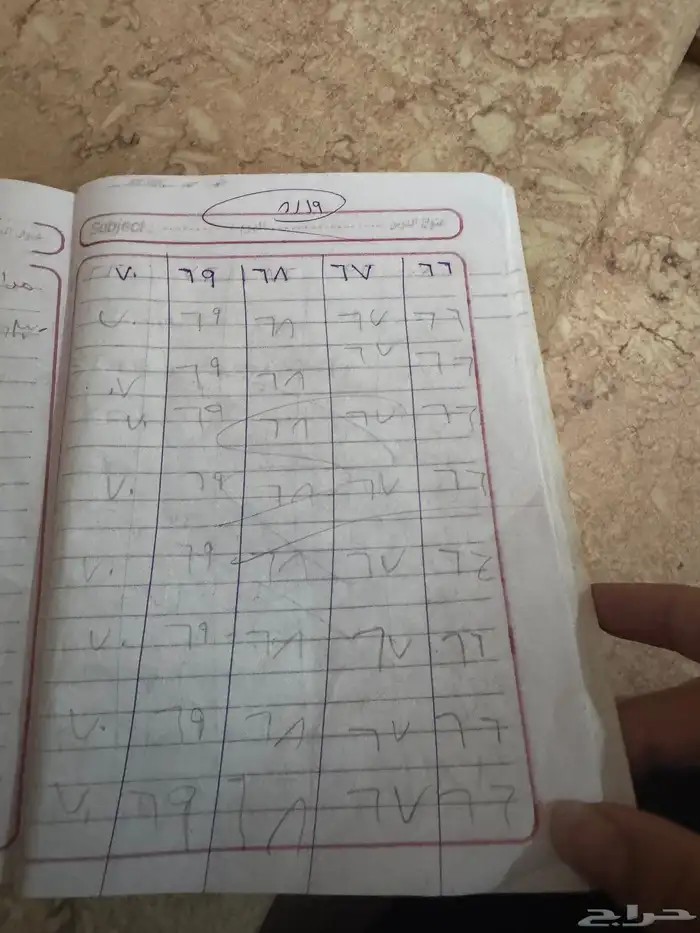 Subject عنوان الدرس
٦٦ ٦٧ ٦٨ ٦٩ ٧٠
٦٦ ٦٧ ٦٨ ٦٩ ٧٠
٦٦ ٦٧ ٦٨ ٦٩ ٧٠
٦٦ ٦٧ ٦٨ ٦٩ ٧٠
٦٦ ٦٧ ٦٨ ٦٩ ٧٠
٦٦ ٦٧ ٦٨ ٦٩ ٧٠
٦٦ ٦٧ ٦٨ ٦٩ ٧٠
٦٦ ٦٧ ٦٨ ٦٩ ٧٠
٦٦ ٦٧ ٦٨ ٦٩ ٧٠
حراج